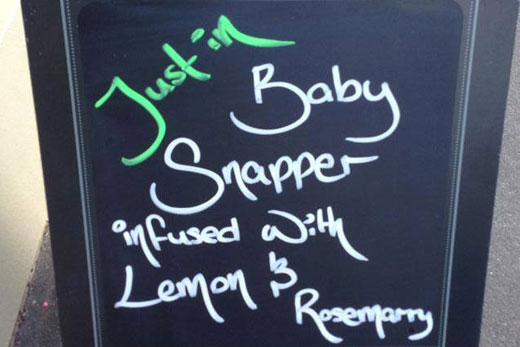 Just in
Baby
Snapper
infused with
Lemon &
Rosemarry